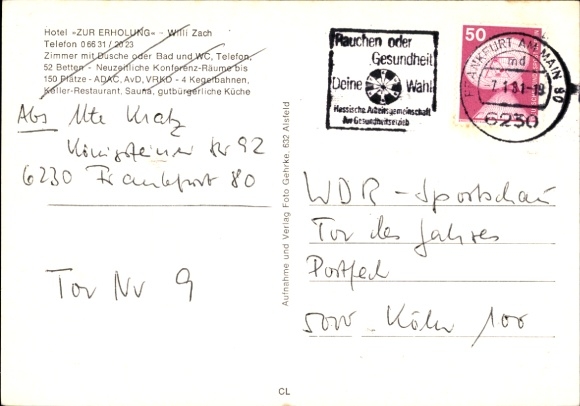 Hotel »ZUR ERHOLUNG« - Willi Zach
Telefon 0 66 31 / 20 23
Zimmer mit Dusche oder Bad und WC, Telefon,
52 Betten - Neuzeitliche Konferenz-Räume bis
150 Plätze - ADAC, AvD, VRKO - 4 Kegelbahnen,
Keller-Restaurant, Sauna, gutbürgerliche Küche
Abs Ute Kratz
Königsteiner Str 92
6230 Frankfurt 80
Tor Nr 9
Aufnahme und Verlag Foto Gehrke, 632 Alsfeld
CL
Rauchen oder
Gesundheit
Deine Wahl
Hessische Arbeitsgemeinschaft
für Gesundheitserzieh
50
FRANKFURT AM MAIN 80
md
7.1.81-18
6230
WDR - Sportschau
Tor des Jahres
Postfach
5000 Köln 100